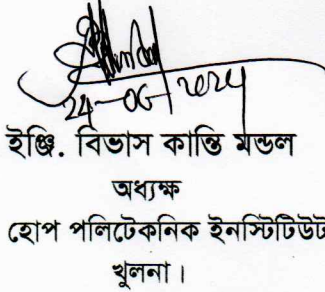 24-06-2024
ইঞ্জি. বিভাস কান্তি মন্ডল
অধ্যক্ষ
হোপ পলিটেকনিক ইনস্টিটিউট
খুলনা।